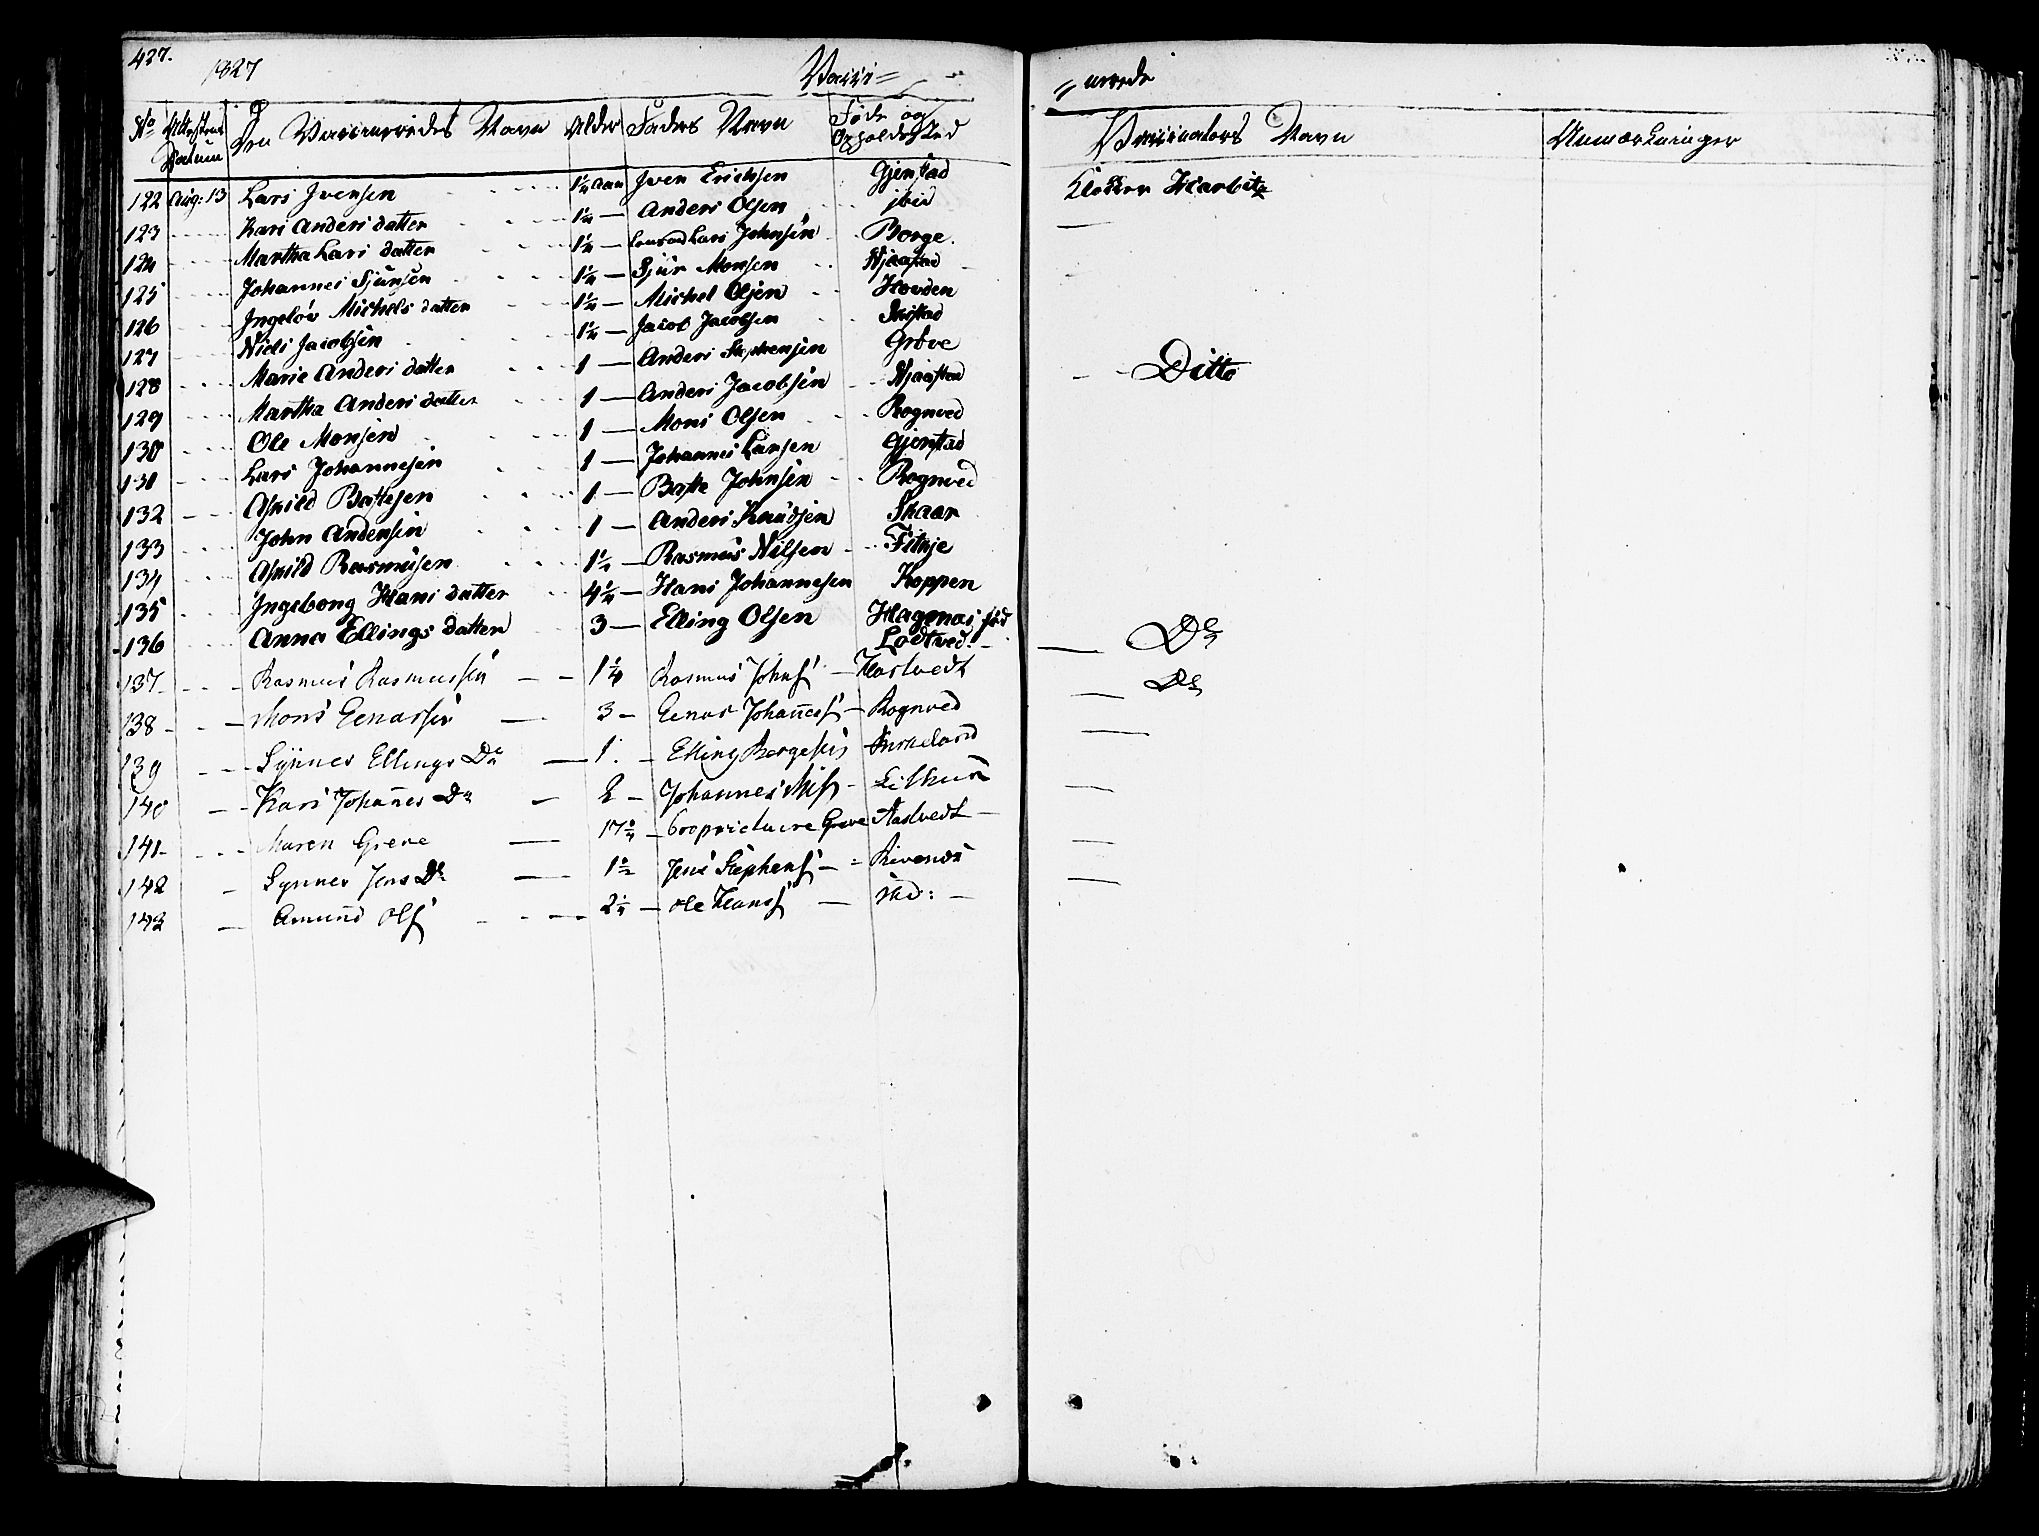 427.
1827
Vacci=
=nerede
No Attestens Datum Den Vaccineredes Navn Alder Faders Navn Føde og Opholdssted Vaccinators Navn Anmærkninger
122 Aug: 13 Lars Iversen 1 1/4 Aar Iver Erichsen Gjerstad Klokker Harbitz
123 Kari Anders datter 1 1/4 — Anders Olsen ibid —
124 Martha Lars datter 1 1/4 — Lars Johnsen Borge.
125 Johannes Sjursen 1 1/4 — Sjur Monsen Njaastad
126 Ingelöv Michels datter 1 1/4 — Michel Olsen Hovden
127 Niels Jacobsen 1 1/4 — Jacob Jacobsen
128 Marie Anders datter 1 — Anders Stephensen Gröve Ditto
129 Martha Anders datter 1 — Anders Jacobsen Njaastad
130 Ole Monsen 1 — Mons Olsen Rognved
131 Lars Johannesen 1 — Johannes Larsen Gjerstad
132 Askild Baltesen 1 — Balte Johnsen Rognved
133 John Andersen 1 — Anders Knudsen Skaar
134 Askild Rasmusen 1 1/2 — Rasmus Nilsen Fitkje
135 Ingeborg Hans datter 4 1/4 — Hans Johannesen Koppen
136 Anna Ellings datter 3 — Elling Olsen Hagenæs föd Lodtved. — Do
137 Rasmus Rasmussen 1 1/4 Rasmus Johns. — Hartvedt — Do
138 Mons Eenarsen 3 — Eenar Johannes. — Rognved —
139 Synnes Ellings Dr 1. — Elling Børgesen Birkeland
140 Kari Johannes Dr 2 — Johannes Nils. — —
141 Maren Greve 17 1/4 — Proprietaire Greve Hartvedt —
142 Synnes Jens Dr 1 1/2 Jens Stephens. — —
143 Amund Ols. 2 1/4 — Ole Hans. — ibd: —